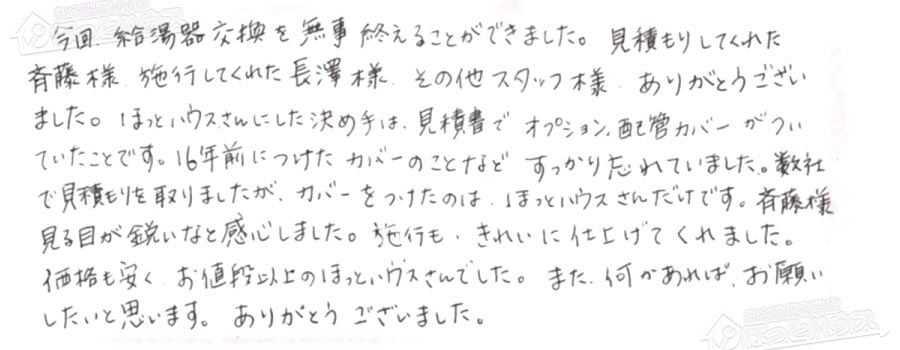 今回、給湯器交換を無事終えることができました。見積もりしてくれた
斉藤様、施行してくれた長澤様、その他スタッフ様、ありがとうござい
ました。ほっとハウスさんにした決め手は、見積書でオプション、配管カバーがつい
ていたことです。16年前につけたカバーのことなどすっかり忘れていました。数社
で見積もりを取りましたが、カバーをつけたのは、ほっとハウスさんだけです。斉藤様
見る目が鋭いなと感心しました。施行も、きれいに仕上げてくれました。
価格も安く、お値段以上のほっとハウスさんでした。また、何かあれば、お願い
したいと思います。ありがとうございました。
ほっとハウス